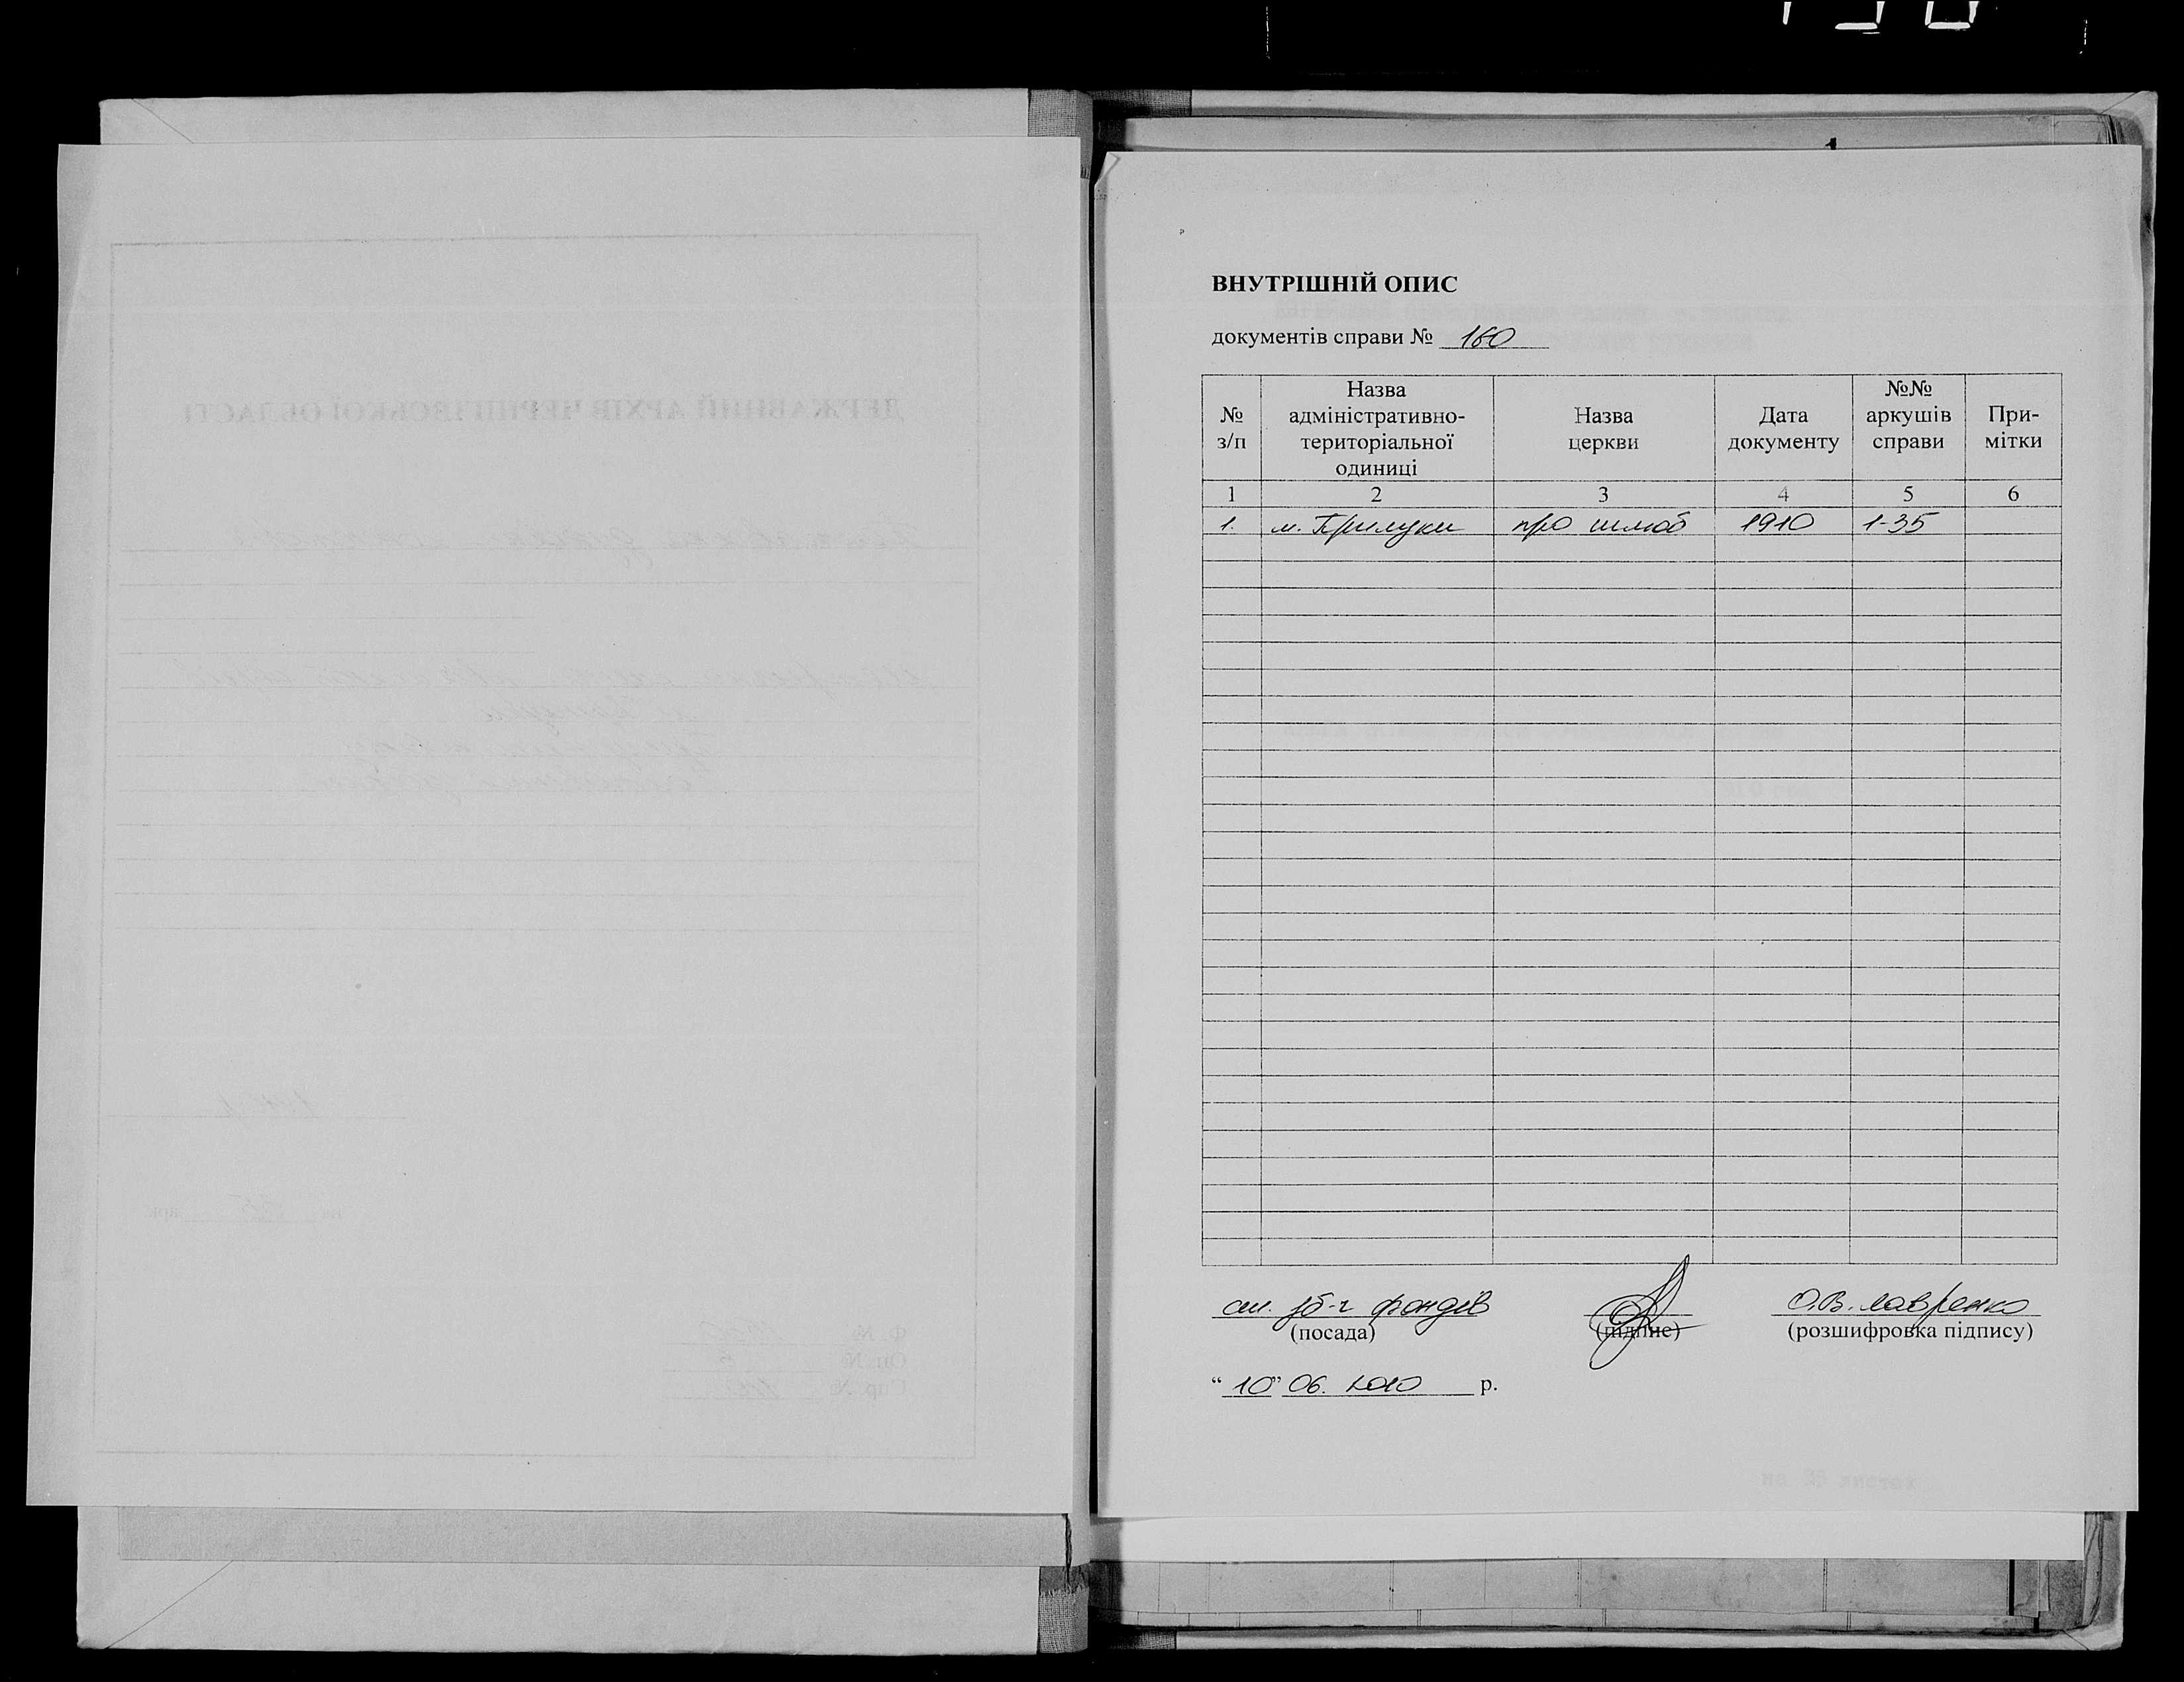 ВНУТРІШНІЙ ОПИС
документів справи № 160
№ з/п
Назва адміністративно-територіальної одиниці
Назва церкви
Дата документу
№№ аркушів справи
При-мітки
1 2 3 4 5 6
1. м. Прилуки про шлюб 1910 1-35
ст. зб-ч фондів О.В. Лавренко
(посада) (підпис) (розшифровка підпису)
“10” 06. 2010 р.
на 35 листах
ДЕРЖАВНИЙ АРХІВ ЧЕРНІГІВСЬКОЇ ОБЛАСТІ
Ф. №
Оп. №
Спр. №